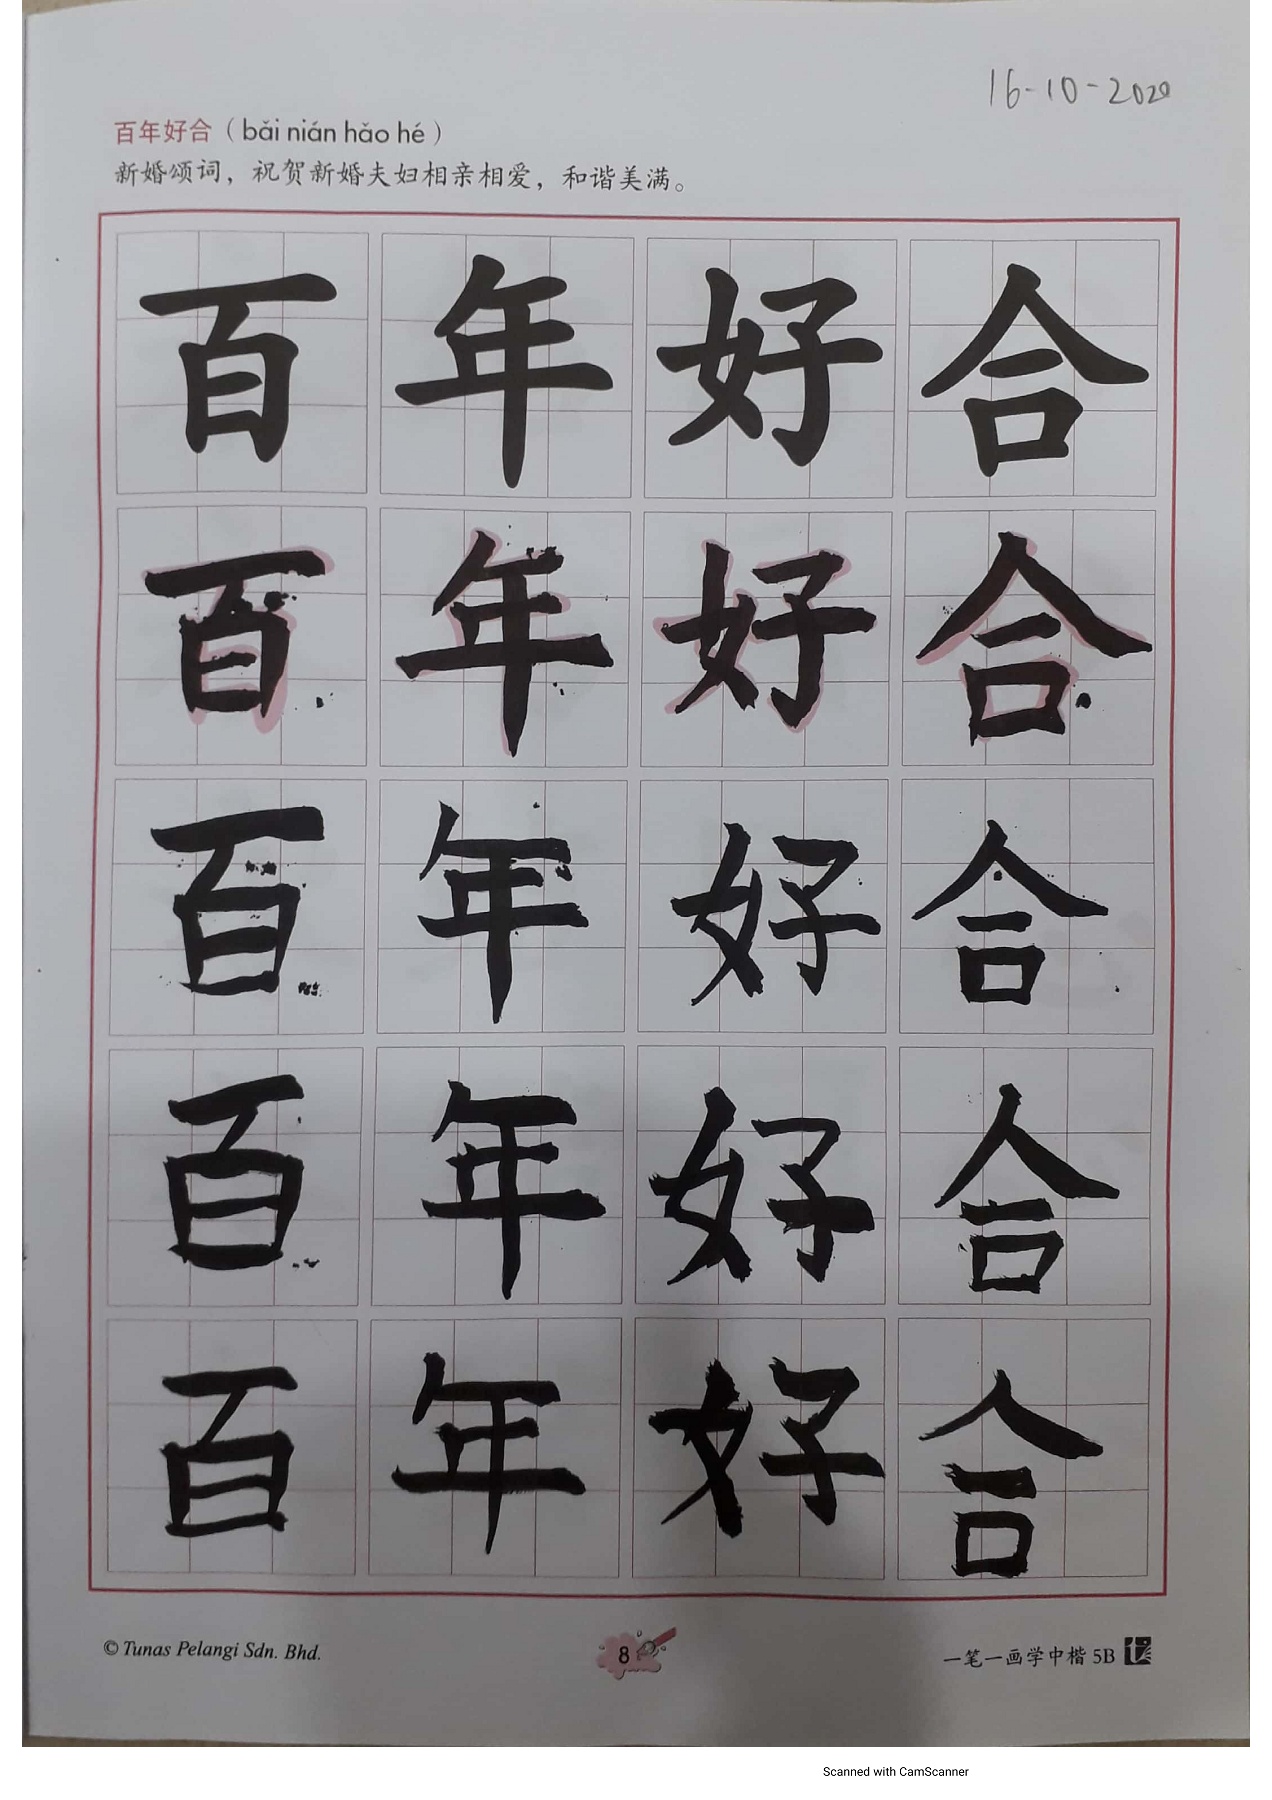 16-10-2020
百年好合（bǎi nián hǎo hé）
新婚颂词，祝贺新婚夫妇相亲相爱，和谐美满。
百年好合
百年好合
百年好合
百年好合
百年好合
© Tunas Pelangi Sdn. Bhd.
8
一笔一画学中楷 5B
Scanned with CamScanner